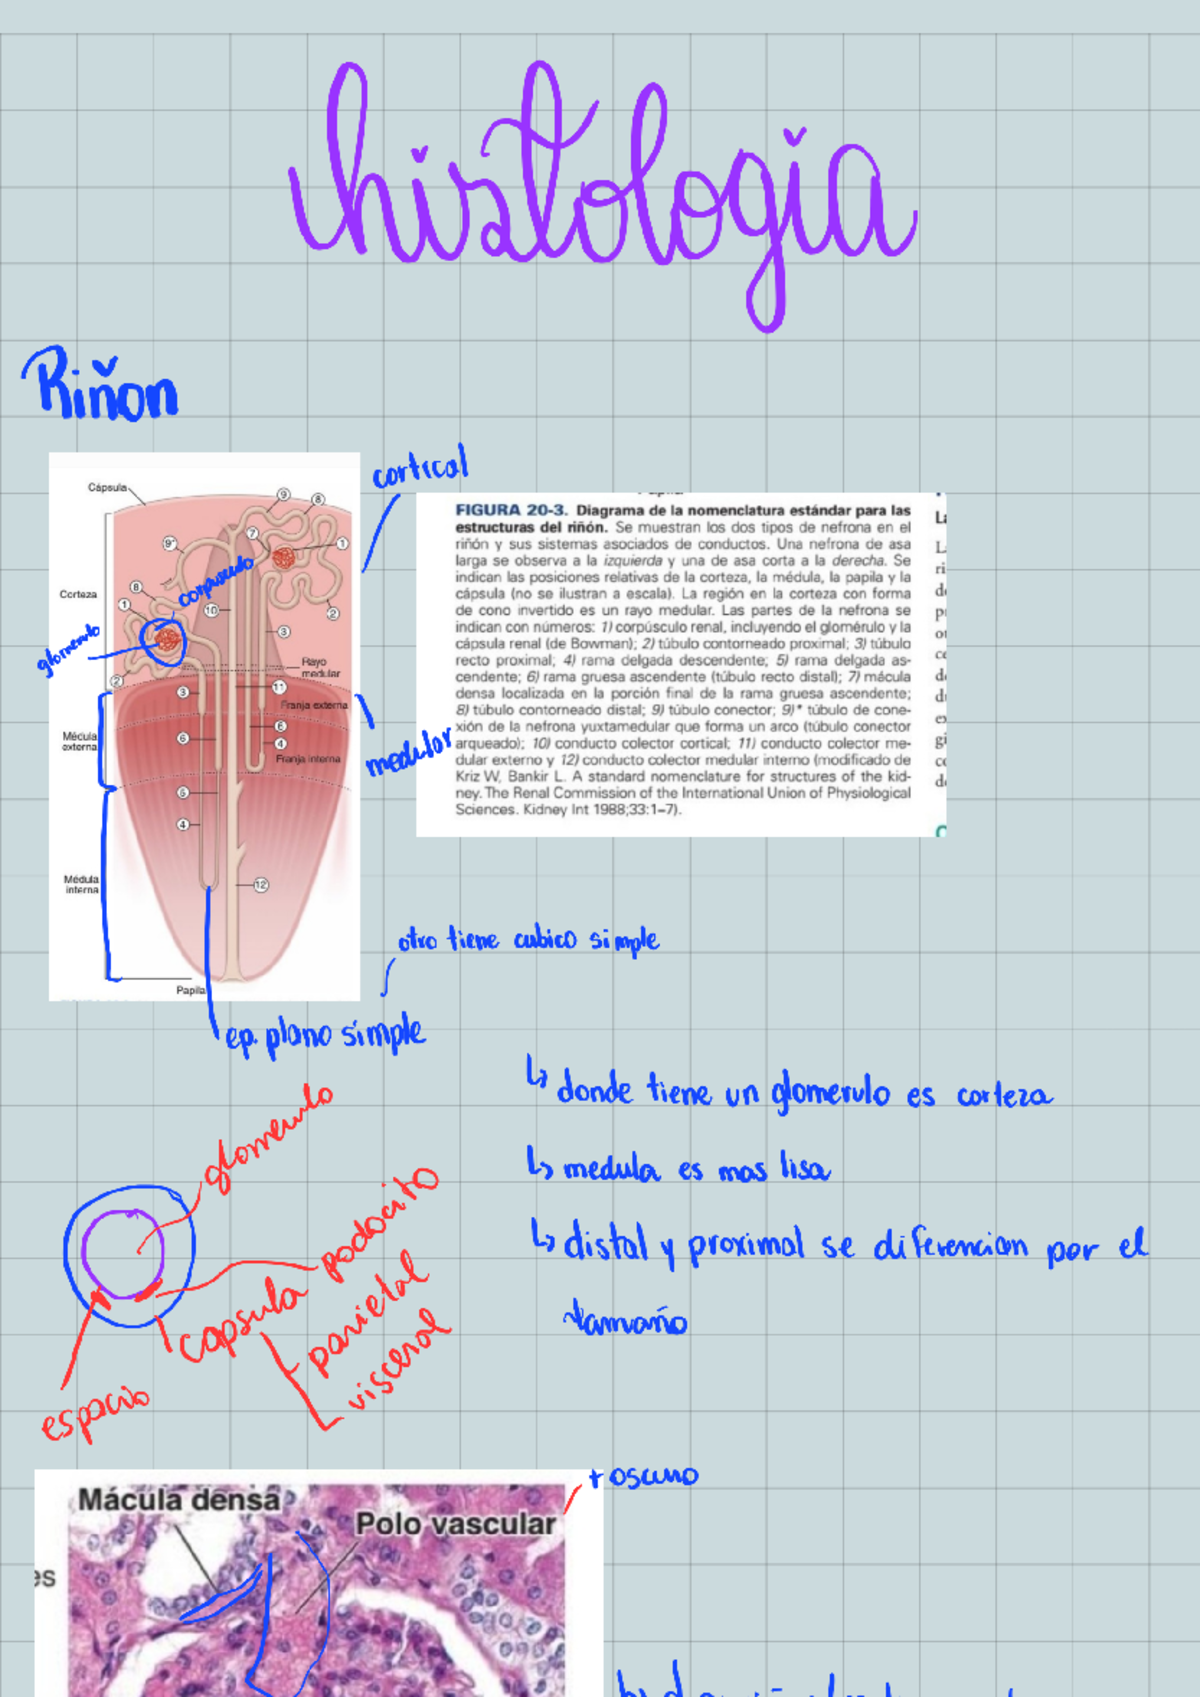 histología
Riñon
cortical
Cápsula
9
8
7
1
9*
corpusculo
Corteza
8
1
10
2
3
glomerulo
Rayo
medular
2
3
11
Franja externa
Médula
externa
6
6
4
Franja interna
medular
5
4
Médula
interna
12
Papila
FIGURA 20-3. Diagrama de la nomenclatura estándar para las
estructuras del riñón. Se muestran los dos tipos de nefrona en el
riñón y sus sistemas asociados de conductos. Una nefrona de asa
larga se observa a la izquierda y una de asa corta a la derecha. Se
indican las posiciones relativas de la corteza, la médula, la papila y la
cápsula (no se ilustran a escala). La región en la corteza con forma
de cono invertido es un rayo medular. Las partes de la nefrona se
indican con números: 1) corpúsculo renal, incluyendo el glomérulo y la
cápsula renal (de Bowman); 2) túbulo contorneado proximal; 3) túbulo
recto proximal; 4) rama delgada descendente; 5) rama delgada as-
cendente; 6) rama gruesa ascendente (túbulo recto distal); 7) mácula
densa localizada en la porción final de la rama gruesa ascendente;
8) túbulo contorneado distal; 9) túbulo conector; 9)* túbulo de cone-
xión de la nefrona yuxtamedular que forma un arco (túbulo conector
arqueado); 10) conducto colector cortical; 11) conducto colector me-
dular externo y 12) conducto colector medular interno (modificado de
Kriz W, Bankir L. A standard nomenclature for structures of the kid-
ney. The Renal Commission of the International Union of Physiological
Sciences. Kidney Int 1988;33:1–7).
otro tiene cubico simple
ep. plano simple
↳ donde tiene un glomerulo es corteza
↳ medula es mas lisa
↳ distal y proximal se diferencian por el
tamaño
glomerulo
podocito
capsula
parietal
visceral
espacio
+ oscuro
Mácula densa
Polo vascular
es